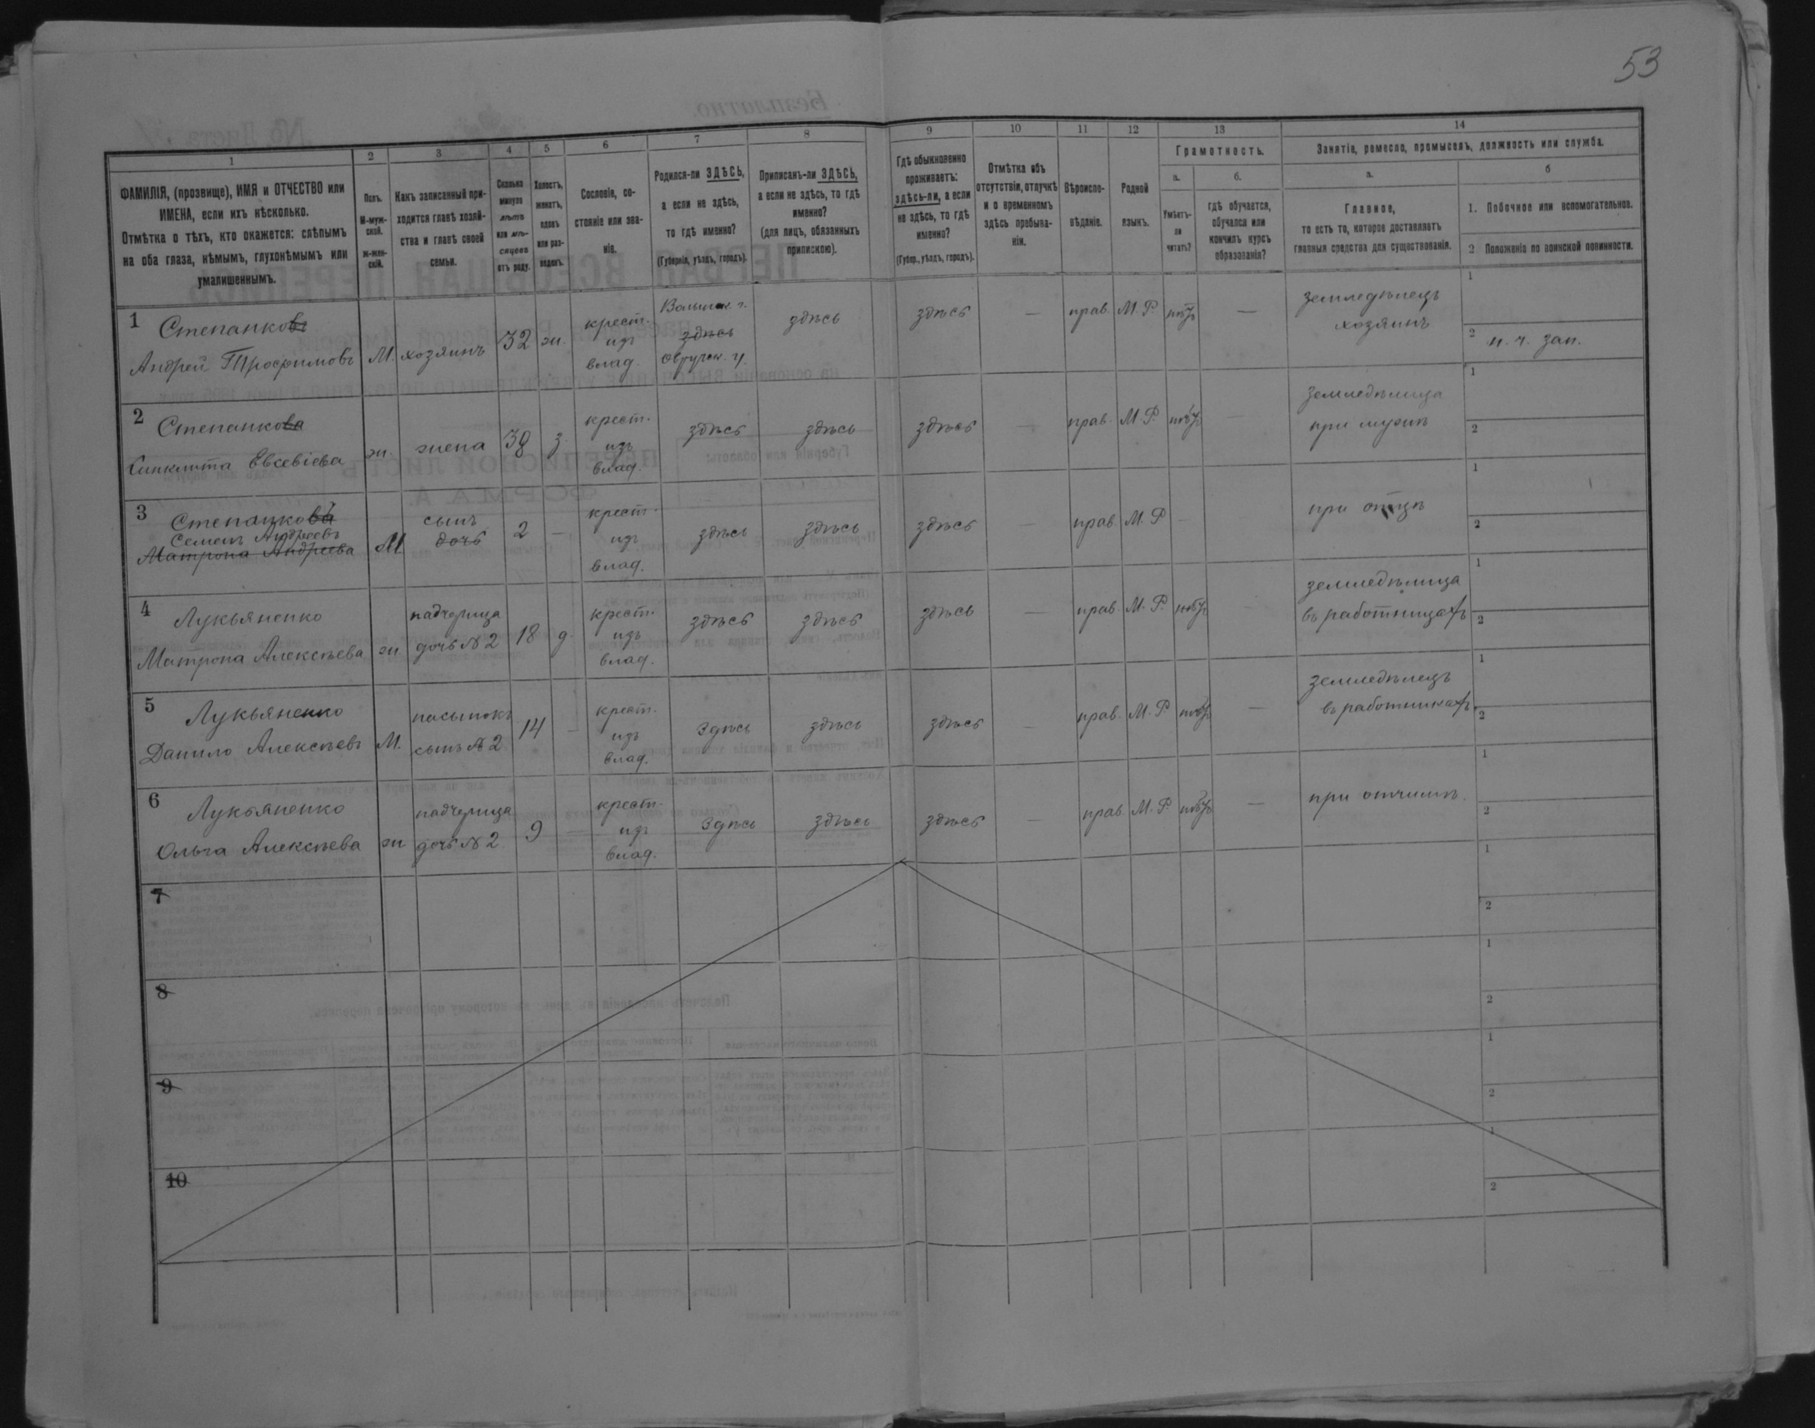 53
1
2
3
4
5
6
7
8
9
10
11
12
13
14
ФАМИЛІЯ, (прозвище), ИМЯ и ОТЧЕСТВО или
ИМЕНА, если ихъ нѣсколько.
Отмѣтка о тѣхъ, кто окажется: слѣпымъ
на оба глаза, нѣмымъ, глухонѣмымъ или
умалишеннымъ.
Полъ.
М-муж-
ской.
Ж-жен-
скій.
Какъ записанный при-
ходится главѣ хозяй-
ства и главѣ своей
семьи.
Сколько
минуло
лѣтъ
или мѣ-
сяцевъ
отъ роду.
Холостъ,
женатъ,
вдовъ
или раз-
веденъ.
Сословіе, со-
стояніе или зва-
ніе.
Родился-ли ЗДѢСЬ,
а если не здѣсь,
то гдѣ именно?
(Губернія, уѣздъ, городъ).
Приписанъ-ли ЗДѢСЬ,
а если не здѣсь, то гдѣ
именно?
(для лицъ, обязанныхъ
припискою).
Гдѣ обыкновенно
проживаетъ:
здѣсь-ли, а если
не здѣсь, то гдѣ
именно?
(Губер., уѣздъ, городъ).
Отмѣтка объ
отсутствіи, отлучкѣ
и о временномъ
здѣсь пребыва-
ніи.
Вѣроиспо-
вѣданіе.
Родной
языкъ.
Грамотность.
а.
Умѣетъ-
ли
читать?
б.
гдѣ обучается,
обучался или
кончилъ курсъ
образованія?
Занятія, ремесло, промыселъ, должность или служба.
а.
Главное,
то есть то, которое доставляетъ
главныя средства для существованія.
б
1. Побочное или вспомогательное.
2 Положеніе по воинской повинности.
1 Степанковъ
Андрей Трофимовъ
М. хозяинъ 32 ж.
крест.
изъ
влад.
Волынск. г.
здѣсь
Овручск. у.
здѣсь здѣсь — прав. М.Р. —
земледѣлецъ
хозяинъ
1
2 н. ч. зап.
2 Степанкова
Евсевіева
ж. жена 38 з.
крест.
изъ
влад.
здѣсь здѣсь здѣсь — прав. М.Р. —
земледѣлица
при мужѣ
1
2
3 Степанкова
Семенъ Андреевъ
Матрона Андреева
М
сынъ
дочь
2 —
крест.
изъ
влад.
здѣсь здѣсь здѣсь — прав. М.Р. -
при отцѣ
1
2
4 Лукьяненко
Матрона Алексѣева
ж
падчерица
дочь №2
18 д
крест.
изъ
влад.
здѣсь здѣсь здѣсь — прав. М.Р. —
земледѣлица
въ работницахъ
1
2
5 Лукьяненко
Данило Алексѣевъ
М.
пасынокъ
сынъ №2
14 —
крест.
изъ
влад.
здѣсь здѣсь здѣсь — прав. М.Р. —
земледѣлецъ
въ работникахъ
1
2
6 Лукьяненко
Ольга Алексѣева
ж
падчерица
дочь №2
9
крест.
изъ
влад.
здѣсь здѣсь здѣсь — прав. М.Р. —
при отчимѣ.
1
2
7
1
2
8
1
2
9
1
2
10
1
2